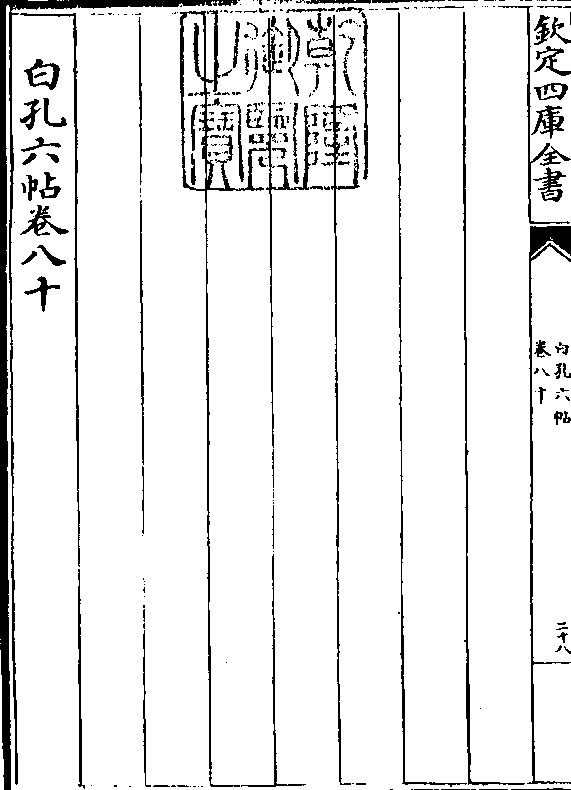 欽定四庫全書
白孔六帖
卷八十
二十八
乾隆
御覽
之寶
白孔六帖卷八十